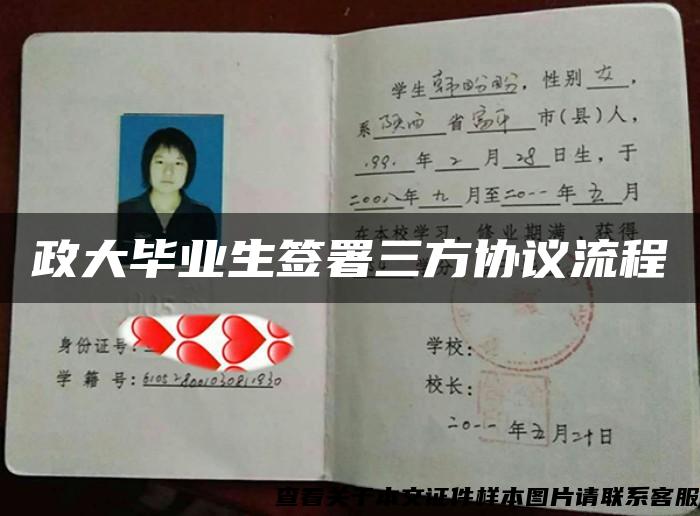 学生韩盼盼，性别女，
系陕西省富平市(县)人，
1991年2月28日生，于
二00八年九月至二0一一年五月
在本校学习，修业期满，获得
政大毕业生签署三方协议流程
学分
身份证号：
学籍号：610528001030811930
学校：
校长：
二0一一年五月二十日
查看关于本文证件样本图片请联系客服